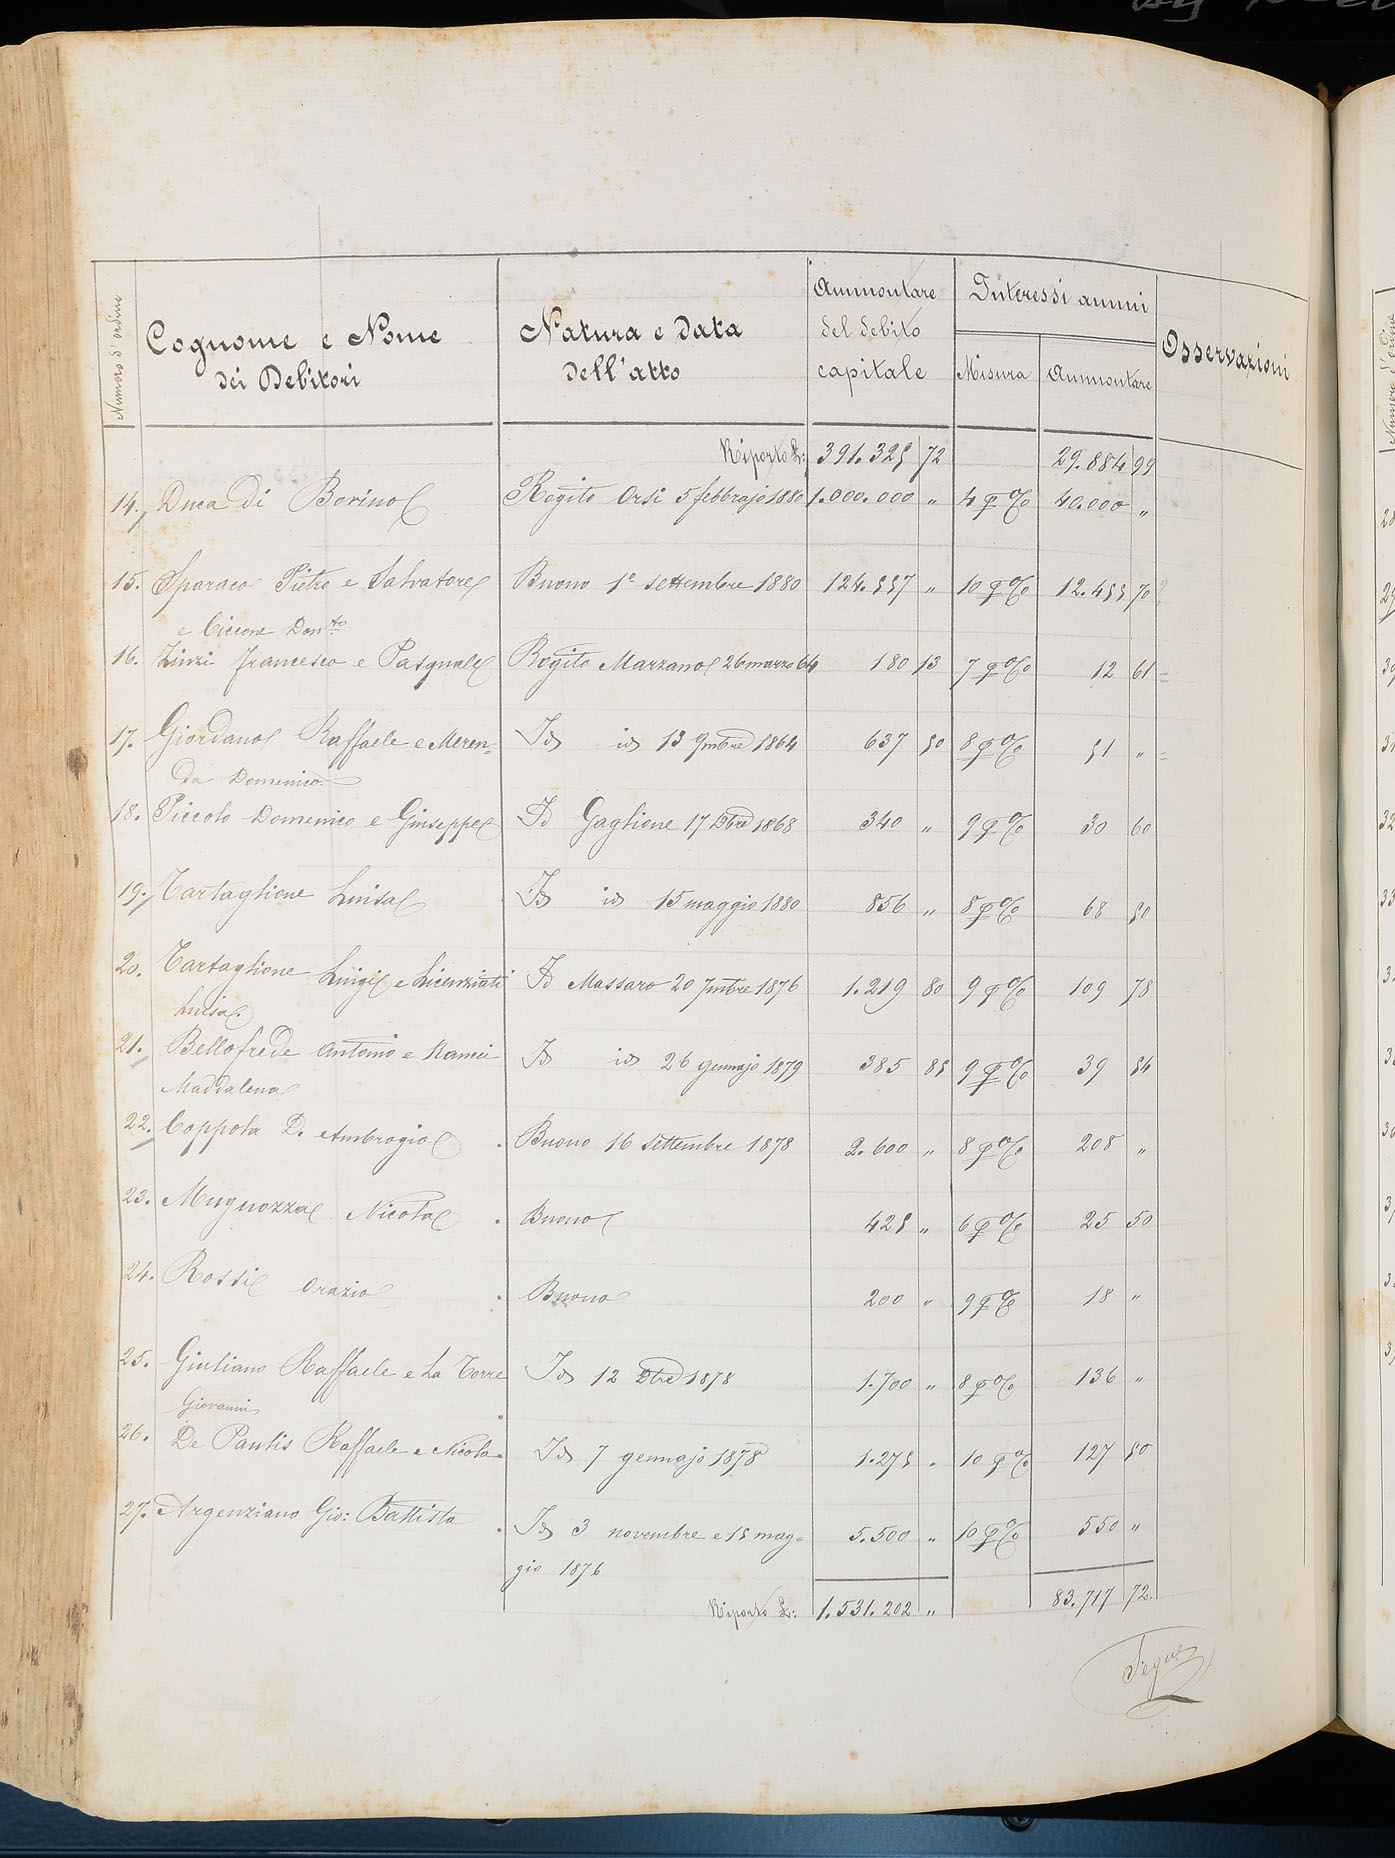 Numero d'ordine
Cognome e Nome
dei Debitori
Natura e data
dell'atto
Ammontare
del debito
capitale
Interessi annui
Misura
Ammontare
Osservazioni
Riporto £: 391.325 72 29.884 99
14. Duca di Bovino Rogito Orsi 5 febbrajo 1880 1.000.000 „ 4 p% 40.000 „
15. Sparaco Pietro e Salvatore Buono 1° settembre 1880 124.557 „ 10 p% 12.455 70
e Ciccone Don.to
16. Zinzi Francesco e Pasquale Rogito Marzano 26 marzo 64 180 13 7 p% 12 61
17. Giordano Raffaele e Meren= Id id 13 9mbre 1864 637 50 8 p% 51 „
da Domenico
18. Piccolo Domenico e Giuseppe Id Gaglione 17 Xbre 1868 340 „ 9 p% 30 60
19. Tartaglione Luisa Id id 15 maggio 1880 856 „ 8 p% 68 50
20. Tartaglione Luigi e Licenziati Id Massaro 20 7mbre 1876 1.219 80 9 p% 109 78
Luisa
21. Bellofrede Antonio e Id id 26 gennajo 1879 385 85 9 p% 39 54
Maddalena
22. Coppola D. Ambrogio Buono 16 settembre 1878 2.600 „ 8 p% 208 „
23. Mugnozza Nicola Buono 425 „ 6 p% 25 50
24. Rossi Orazio Buono 200 „ 9 p% 18 „
25. Giuliano Raffaele e La Torre Id 12 Xbre 1878 1.700 „ 8 p% 136 „
Giovanni
26. De Paulis Raffaele e Nicola Id 7 gennajo 1878 1.275 „ 10 p% 127 50
27. Argenziano Gio: Battista Id 3 novembre e 15 mag= 5.500 „ 10 p% 550 „
gio 1876
Riporto £: 1.531.202 „ 83.717 72
Segue